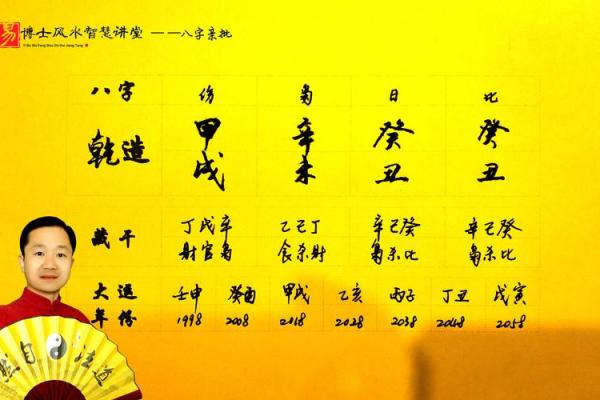 易 博士风水智慧讲堂 ——八字亲批
Yi Bo Shi Feng Shui Zhi Hui Jiang Tang
八字 伤 枭 日 比
乾造 甲戌 辛未 癸丑 癸丑
藏干 丁戊辛 乙己丁 辛己癸 辛己癸
财官枭 食杀财 枭杀比 枭杀比
大运 壬申 癸酉 甲戌 乙亥 丙子 丁丑 戊寅
年份 1998 2008 2018 2028 2038 2048 2058
道法自然